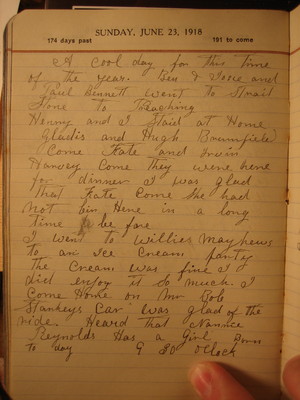 SUNDAY, JUNE 23, 1918
174 days past 191 to come
A cool day for this time
of the year. Ben & Josie and
Paul Bennett went to Strait
Stone to Preaching
Henry and I Staid at Home
Gladis and Hugh Brumfield
Come Kate and Irvin
Harvey Come they were here
for dinner I was glad
that Kate Come She had
not bin Here in a long
time be fore
I went to Willie Mayhews
to an Ice Cream party
The Cream was fine I
did enjoy it so much. I
Come Home on Mr Bob
Stankeys Car was glad of the
ride. Heard that Nannie
Reynolds Has a Girl Born
to day 9 30 O'Clock